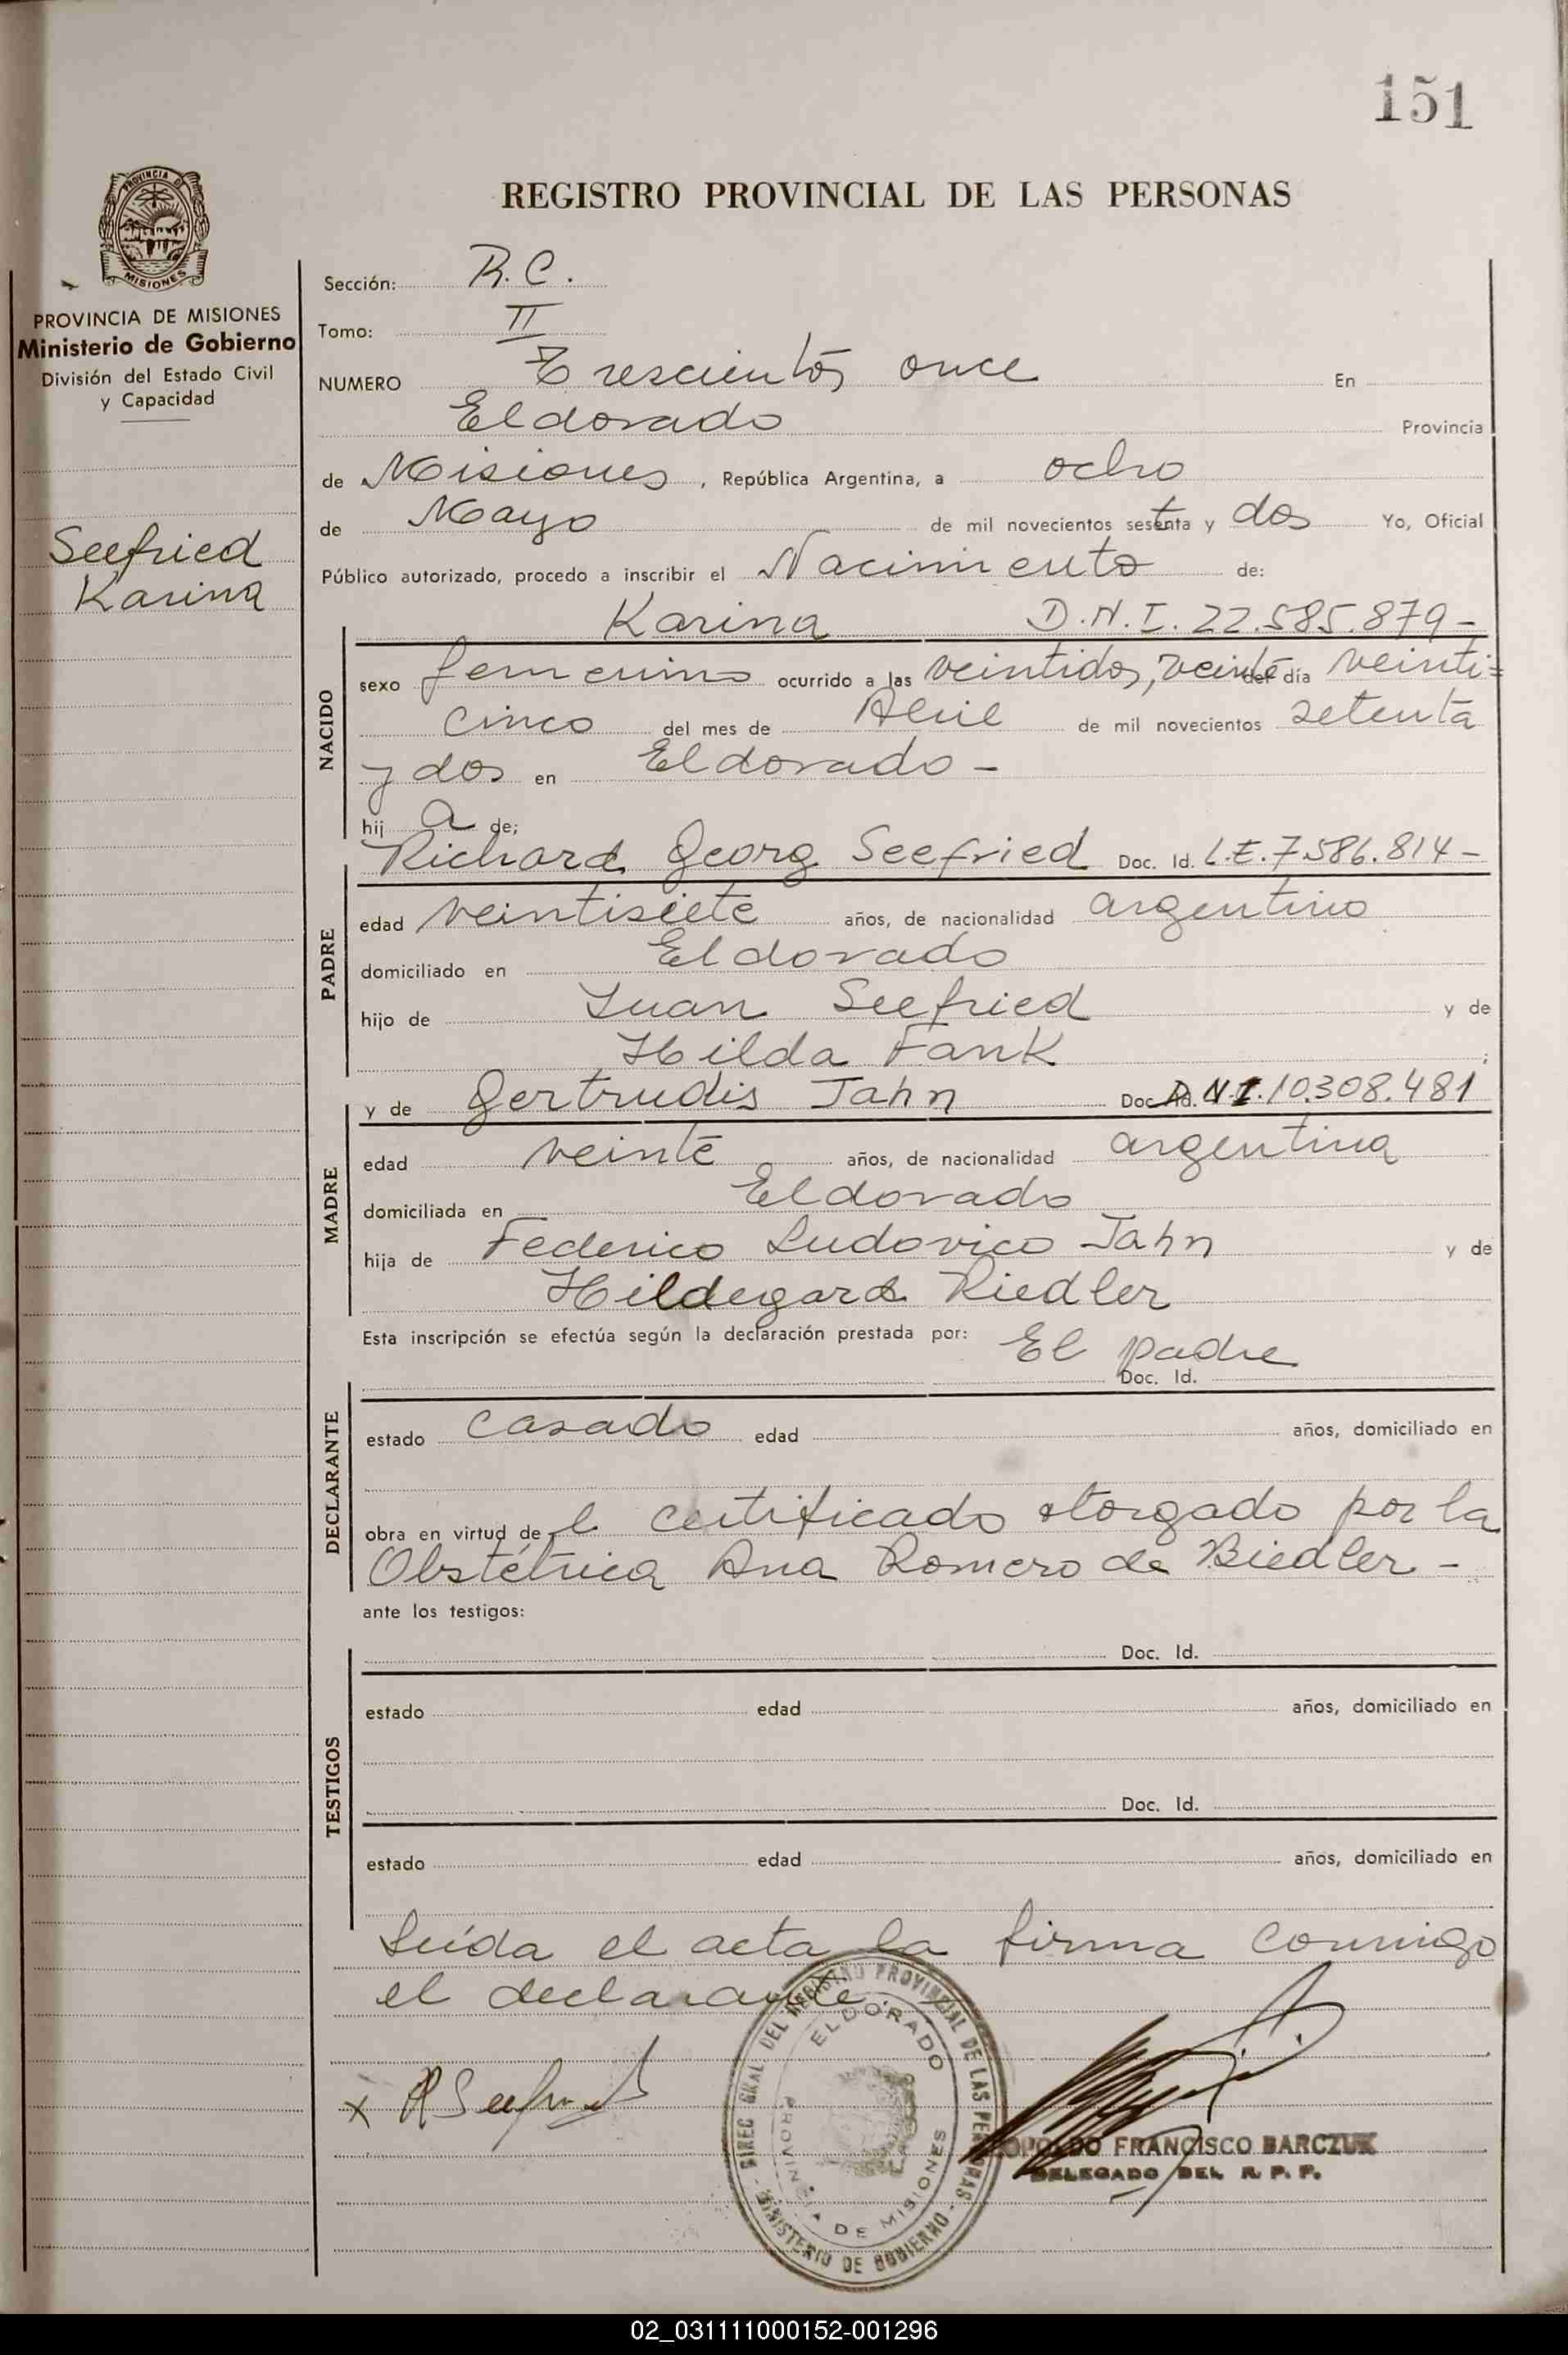 151
PROVINCIA DE
MISIONES
PROVINCIA DE MISIONES
Ministerio de Gobierno
División del Estado Civil
y Capacidad
Seefried
Karina
REGISTRO PROVINCIAL DE LAS PERSONAS
Sección: R.C.
Tomo: II
NUMERO Trescientos once En
Eldorado Provincia
de Misiones, República Argentina, a ocho
de Mayo de mil novecientos setenta y dos Yo, Oficial
Público autorizado, procedo a inscribir el Nacimiento de:
Karina D.N.I. 22.585.879-
NACIDO
sexo femenino ocurrido a las veintidos, veinte del día veinti=
cinco del mes de Abril de mil novecientos setenta
y dos en Eldorado -
hij a de;
Richard Georg Seefried Doc. Id. L.E. 7.586.814-
PADRE
edad veintisiete años, de nacionalidad argentino
domiciliado en Eldorado
hijo de Juan Seefried y de
Hilda Fank ;
y de Gertrudis Jahn Doc. Id. D.N.I. 10.308.481
MADRE
edad veinte años, de nacionalidad argentina
domiciliada en Eldorado
hija de Federico Ludovico Jahn y de
Hildegard Riedler
Esta inscripción se efectúa según la declaración prestada por: El padre
Doc. Id.
DECLARANTE
estado casado edad años, domiciliado en
obra en virtud de l certificado otorgado por la
Obstétrica Ana Romero de Biedler -
ante los testigos:
Doc. Id.
TESTIGOS
estado edad años, domiciliado en
Doc. Id.
estado edad años, domiciliado en
Leída el acta la firma conmigo
el declarante.
x R Seefried
DIREC GRAL. DEL REGISTRO PROVINCIAL DE LAS PERSONAS
ELDORADO
PROVINCIA DE MISIONES
MINISTERIO DE GOBIERNO
LEOPOLDO FRANCISCO BARCZUK
DELEGADO DEL R. P. P.
02_031111000152-001296